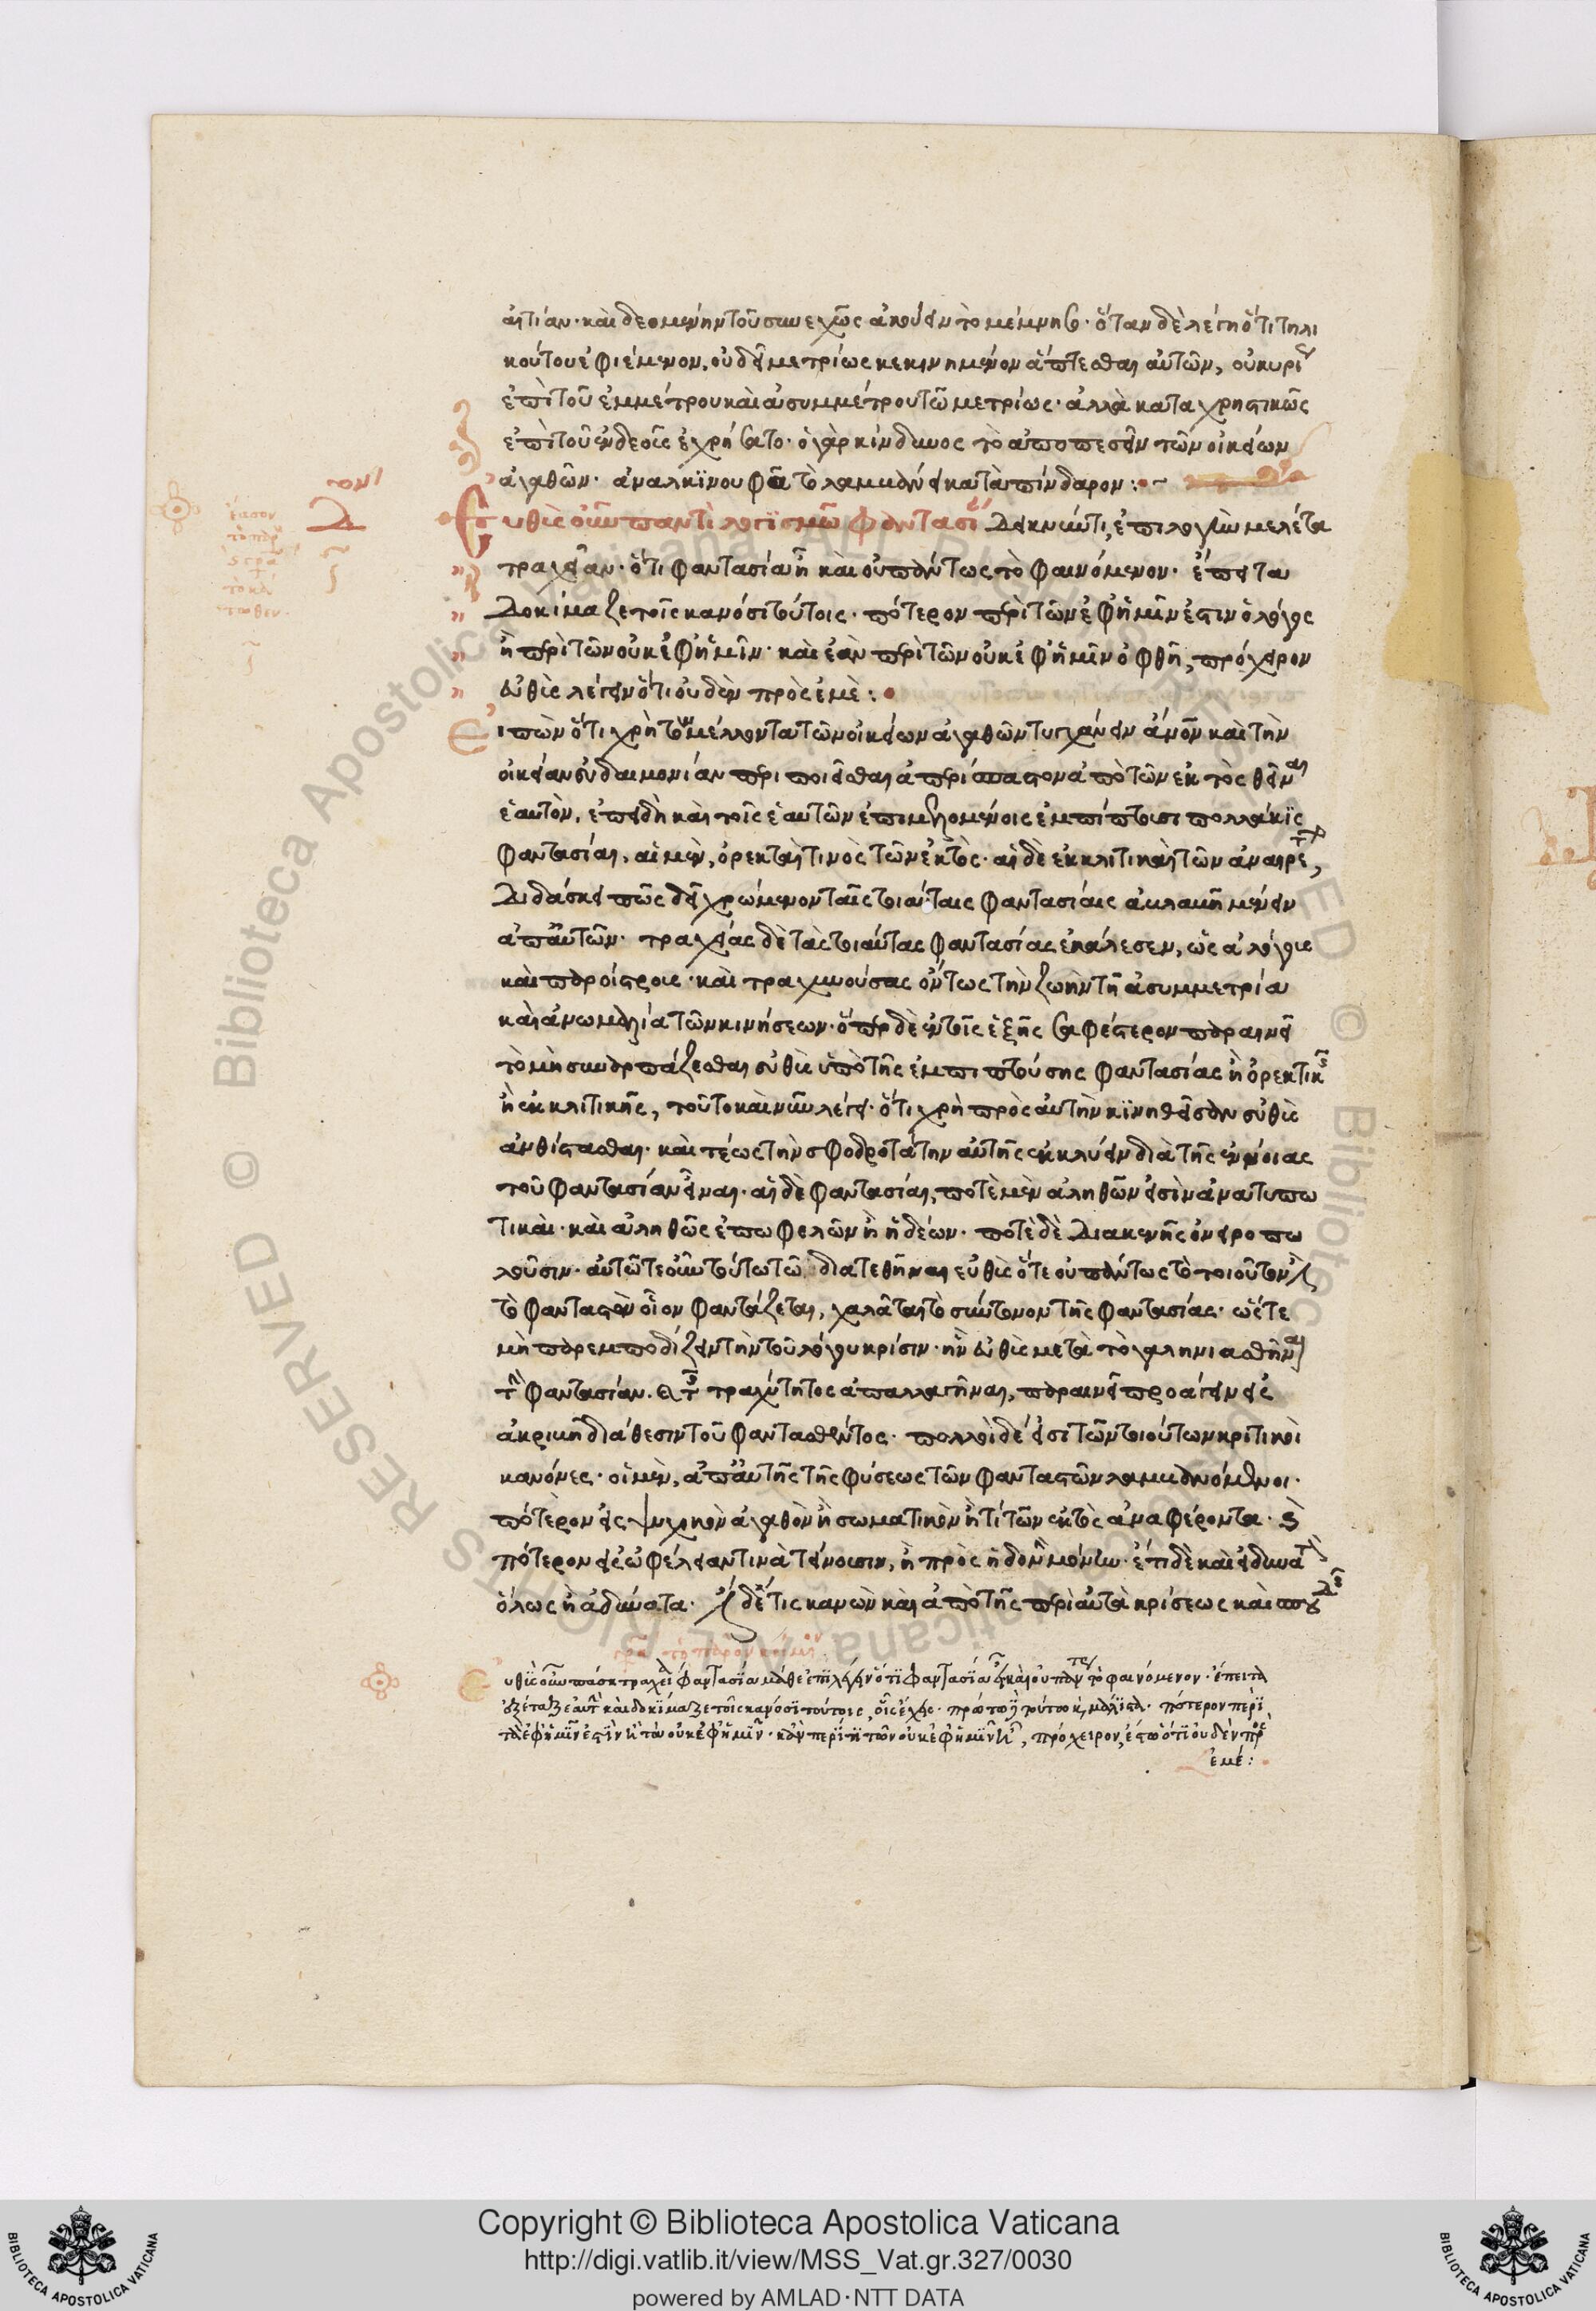 αἰτίαν· καὶ δεομένην τοῦ συνεχῶς ἀκούειν τὸ μέμνησο· ὅταν δὲ λέγῃ ὅτι τηλι
κούτου ἐφιέμενον, οὐ δεῖ μετρίως κεκινημένον ἅπτεσθαι αὐτῶν, οὐ κυρί
ἐπὶ τοῦ ἐμμέτρου καὶ συμμέτρου τῷ μετρίως· ἀλλὰ καταχρηστικῶς
ἐπὶ τοῦ ἐνδεοῦς ἐχρήσατο· ὁ γὰρ κίνδυνος τὸ ἀποπεσεῖν τῶν οἰκείων
ἀγαθῶν· ἀναλκιν οὐ φῶτα λαμβάνει κατὰ πίνδαρον :
Εὐθὺς οὖν παντὶ λογισμῷ φαντασί δεικνύντι, ἐπιλέγειν μελέτα
τραχεῖαν· ὅτι φαντασία εἶ καὶ οὐ πάντως τὸ φαινόμενον· ἔπειτα
δοκίμαζε τοῖς κανόσι τούτοις· πότερον περὶ τῶν ἐφ' ἡμῖν ἐστιν ὁ λόγος
ἢ περὶ τῶν οὐκ ἐφ' ἡμῖν· καὶ ἐὰν περὶ τῶν οὐκ ἐφ' ἡμῖν ὀφθῇ, πρόχειρον
εὐθὺς λέγειν ὅτι οὐδὲν πρὸς ἐμὲ :
Εἰπὼν ὅτι χρὴ τὸν μέλλοντα τῶν οἰκείων ἀγαθῶν τυγχάνειν ἀνον καὶ τὴν
οἰκείαν εὐδαιμονίαν περιποιεῖσθαι ἀπερίσπαστον ἀπὸ τῶν ἐκτὸς θεῖναι
ἑαυτὸν, ἐπειδὴ καὶ τοῖς ἑαυτῶν ἐπιμελομένοις ἐμπίπτουσι πολλάκις
φαντασίαι, αἱ μὲν, ὀρεκταὶ τινὸς τῶν ἐκτὸς· αἱ δὲ ἐκκλιτικαὶ τῶν
διδάσκει πῶς δεῖ χρώμενον ταῖς τοιαύταις φαντασίαις ἀβλαβῆ μένειν
ἀπ' αὐτῶν· τραχείας δὲ τὰς τοιαύτας φαντασίας ἐκάλεσεν, ὡς ἀλόγους
καὶ παροίστρους· καὶ τραχυνούσας ὄντως τὴν ζωὴν τῇ ἀσυμμετρίᾳ
καὶ ἀνωμαλίᾳ τῶν κινήσεων· ὅπερ δὲ ἐν τοῖς ἑξῆς σαφέστερον παραινεῖ
τὸ μὴ συναρπάζεσθαι εὐθὺς ὑπὸ τῆς ἐμπιπτούσης φαντασίας ἢ ὀρεκτικ
ἢ ἐκκλιτικῆς, τοῦτο καὶ νῦν λέγει· ὅτι χρὴ πρὸς αὐτὴν κινηθεῖσαν εὐθὺς
ἀνθίστασθαι· καὶ τέως τὴν σφοδρότητα αὐτῆς ἐκλύειν διὰ τῆς ἐννοίας
τοῦ φαντασίαν εἶναι· αἱ δὲ φαντασίαι, ποτὲ μὲν ἀληθῶν εἰσὶν ἀνατυπω
τικαὶ· καὶ ἀληθῶς ἐπωφελῶν ἢ ἡδέων· ποτὲ δὲ διακενῆς ὀνειροπω
λοῦσιν· αὐτῷ τε οὖν τούτῳ τῷ διατεθῆναι εὐθὺς ὅτε οὐ πάντως τὸ τοιοῦτον
τὸ φανταστὸν οἷον φαντάζεται, χαλᾶται τὸ σύντονον τῆς φαντασίας· ὥστε
μὴ παρεμποδίζειν τὴν τοῦ λόγου κρίσιν· ἣν εὐθὺς μετὰ τὸ γαληνιασθῆναι
τὴν φαντασίαν. τραχύτητος ἀπαλλαγῆναι, παραινεῖ προσάγειν εἰς
ἀκριβῆ διάθεσιν τοῦ φαντασθέντος· πολλοὶ δέ εἰσι τῶν τοιούτων κριτικοὶ
κανόνες· οἱ μὲν, ἀπ' αὐτῆς τῆς φύσεως τῶν φανταστῶν λαμβανόμενοι·
πότερον εἰς ψυχικὸν ἀγαθὸν ἢ σωματικὸν ἢ τί τῶν ἐκτὸς ἀναφέροντα· καὶ
πότερον εἰς ὠφέλειαν τινὰ τείνουσιν, ἢ πρὸς ἡδονὴν μόνην· ἔτι δὲ καὶ εἰ δυνατὰ
ὅλως ἢ ἀδύνατα· δέ τις κανὼν καὶ ἀπὸ τῆς περὶ αὐτὰ κρίσεως καὶ σπουδῆς
Εὐθὺς οὖν πάσῃ τραχείᾳ φαντασίᾳ μάθε ἐπιλέγειν ὅτι φαντασία εἶ καὶ οὐ πάντως τὸ φαινόμενον· ἔπειτα
ἐξέταζε αὐτὴν καὶ δοκίμαζε τοῖς κανόσι τούτοις, οἷς ἔχεις· πρώτῳ δὲ τούτῳ καὶ μάλιστα· πότερον περὶ
τὰ ἐφ' ἡμῖν ἐστὶν ἢ τὰ οὐκ ἐφ' ἡμῖν· κἂν περί τι τῶν οὐκ ἐφ' ἡμῖν ᾖ, πρόχειρον ἔστω ὅτι οὐδὲν πρὸς
ἐμέ :
Copyright © Biblioteca Apostolica Vaticana
http://digi.vatlib.it/view/MSS_Vat.gr.327/0030
powered by AMLAD · NTT DATA